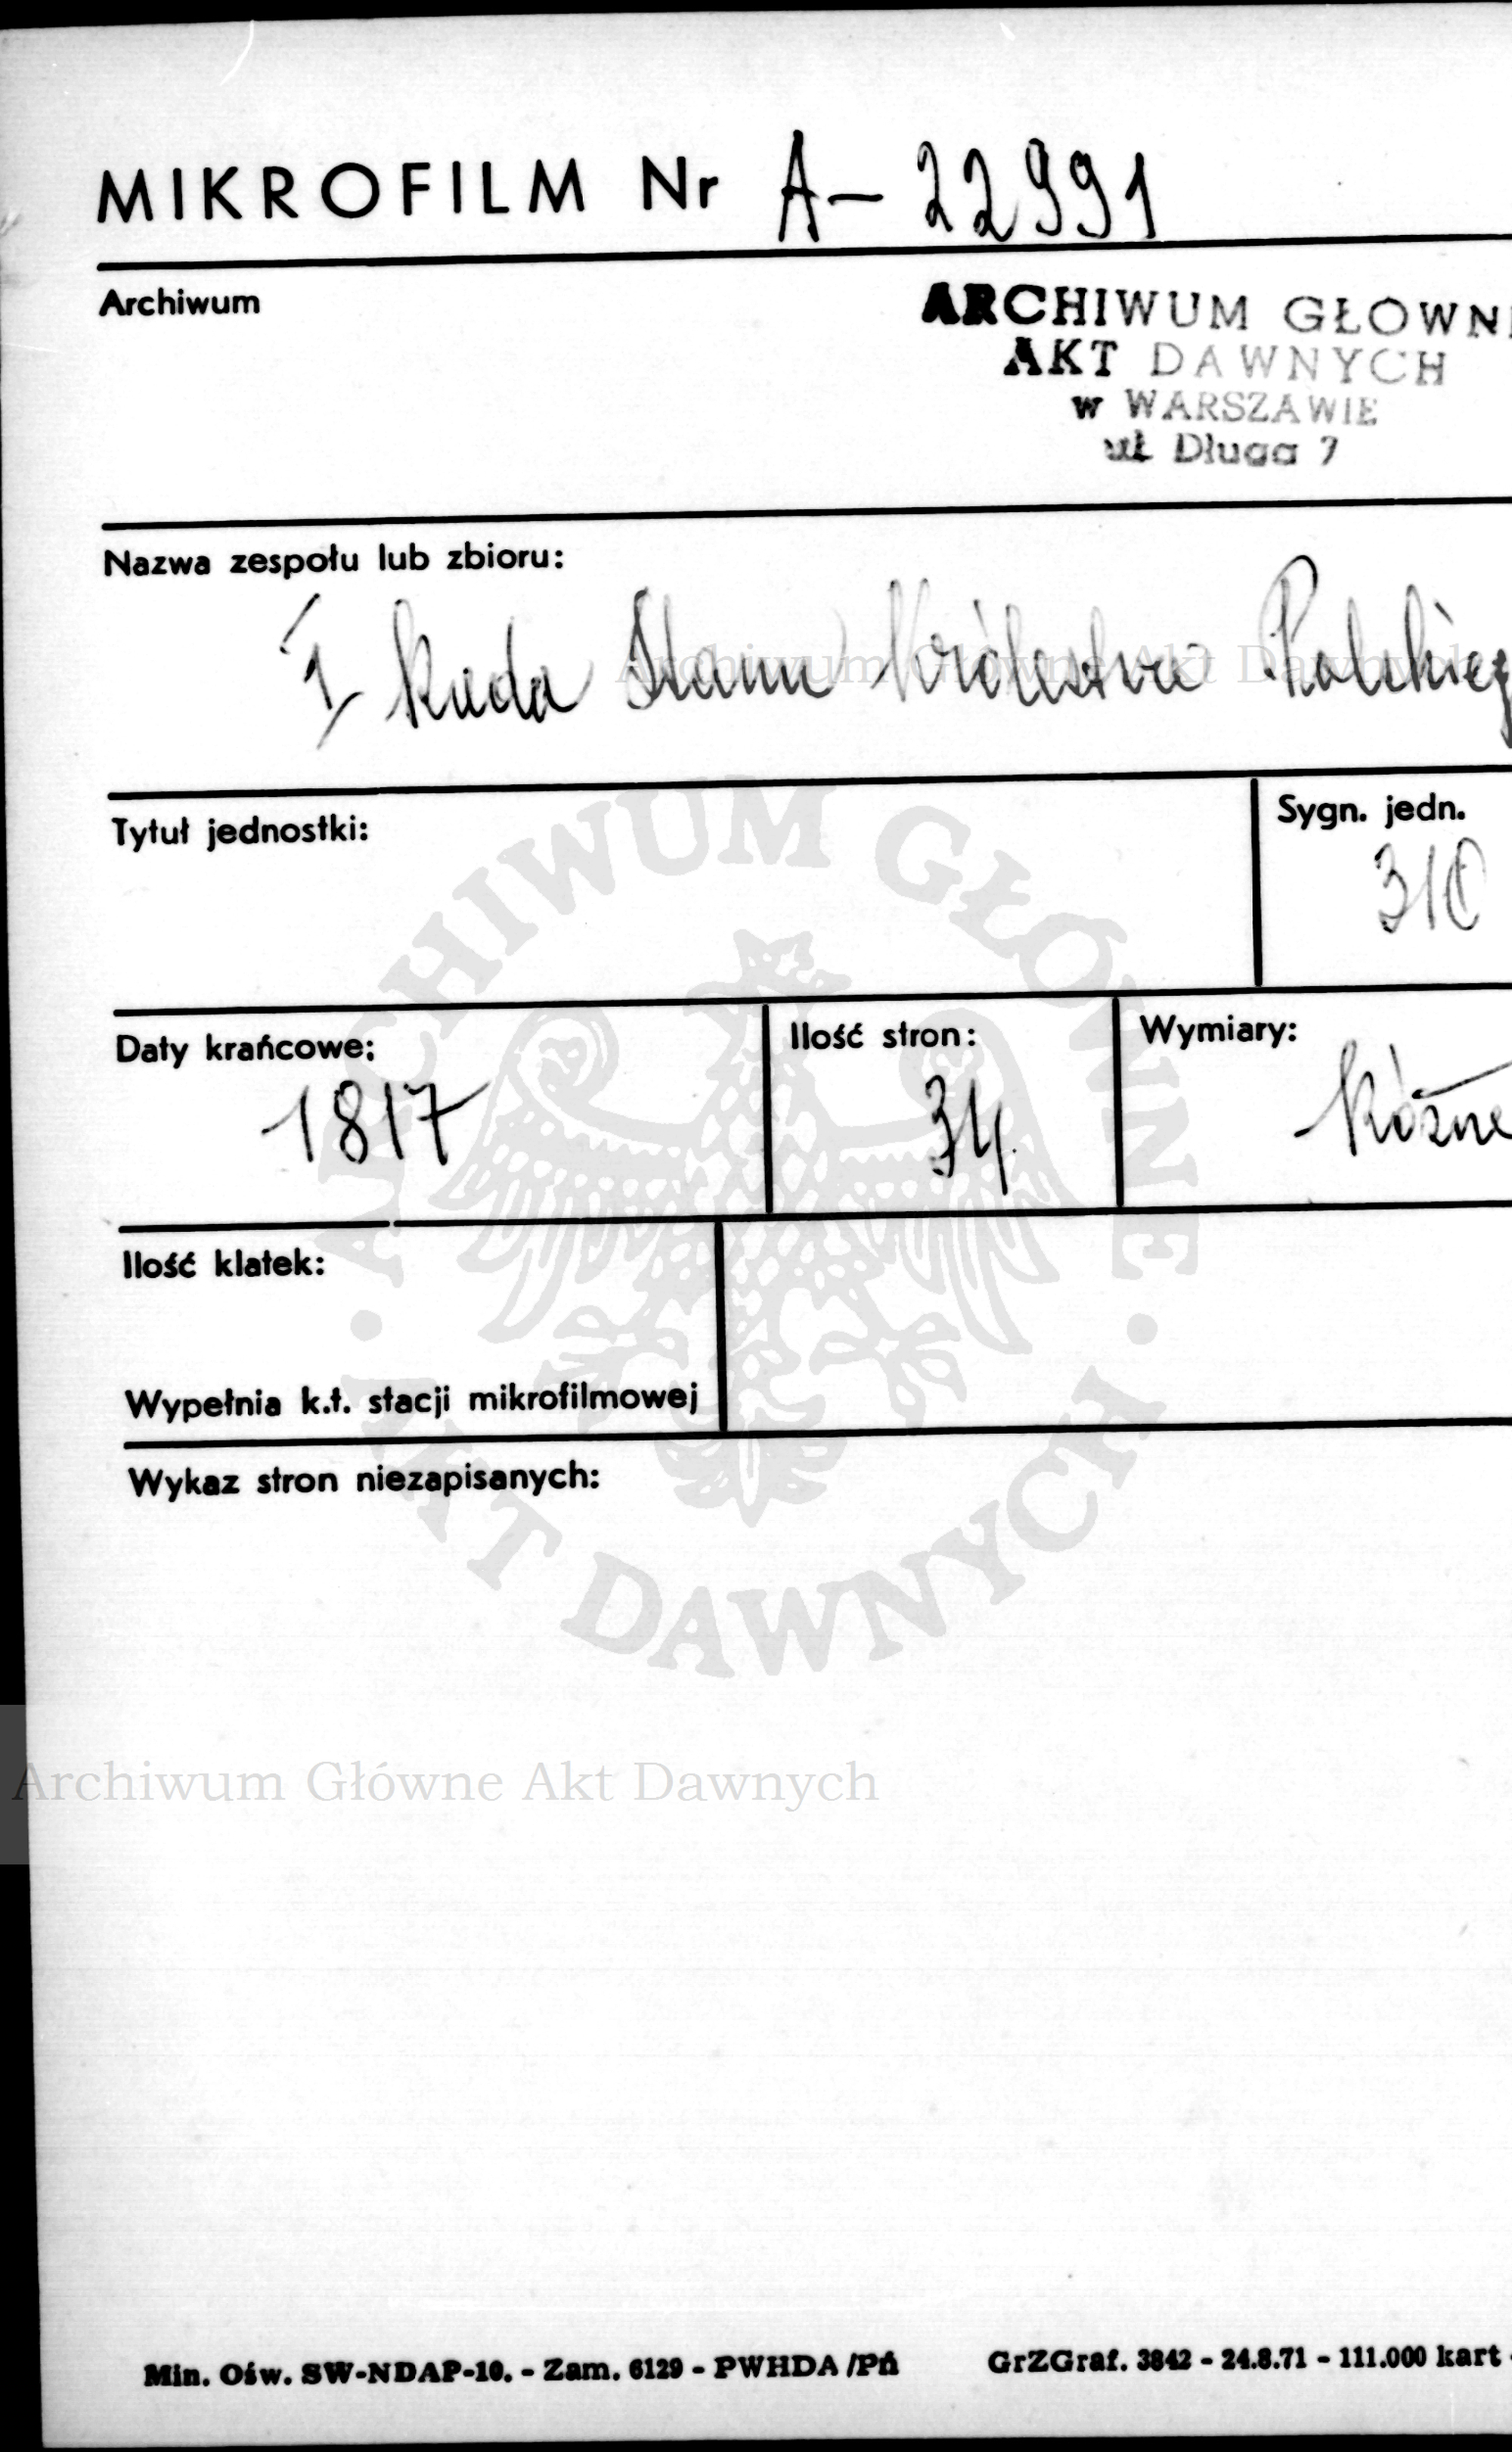 MIKROFILM Nr A-22991
Archiwum
ARCHIWUM GŁOWN
AKT DAWNYCH
w WARSZAWIE
ul Długa 7
Nazwa zespołu lub zbioru:
I Rada Stanu Królestwa Polskieg
Archiwum Główne Akt Dawnych
Tytuł jednostki:
Sygn. jedn.
310
Daty krańcowe:
1817
Ilość stron:
34
Wymiary:
Różne
Ilość klatek:
Wypełnia k.t. stacji mikrofilmowej
Wykaz stron niezapisanych:
ARCHIWUM GŁÓWNE
AKT DAWNYCH
Archiwum Główne Akt Dawnych
Min. Ośw. SW-NDAP-10. - Zam. 6129 - PWHDA /Pń
GrZGraf. 3842 - 24.8.71 - 111.000 kart